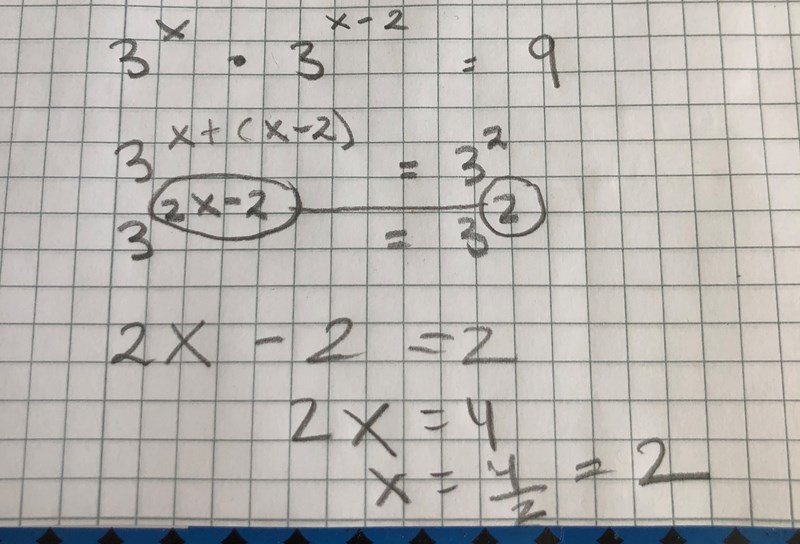 3^x · 3^(x-2) = 9
3^(x+(x-2)) = 3^2
3^(2x-2) = 3^2
2x - 2 = 2
2x = 4
x = 4/2 = 2